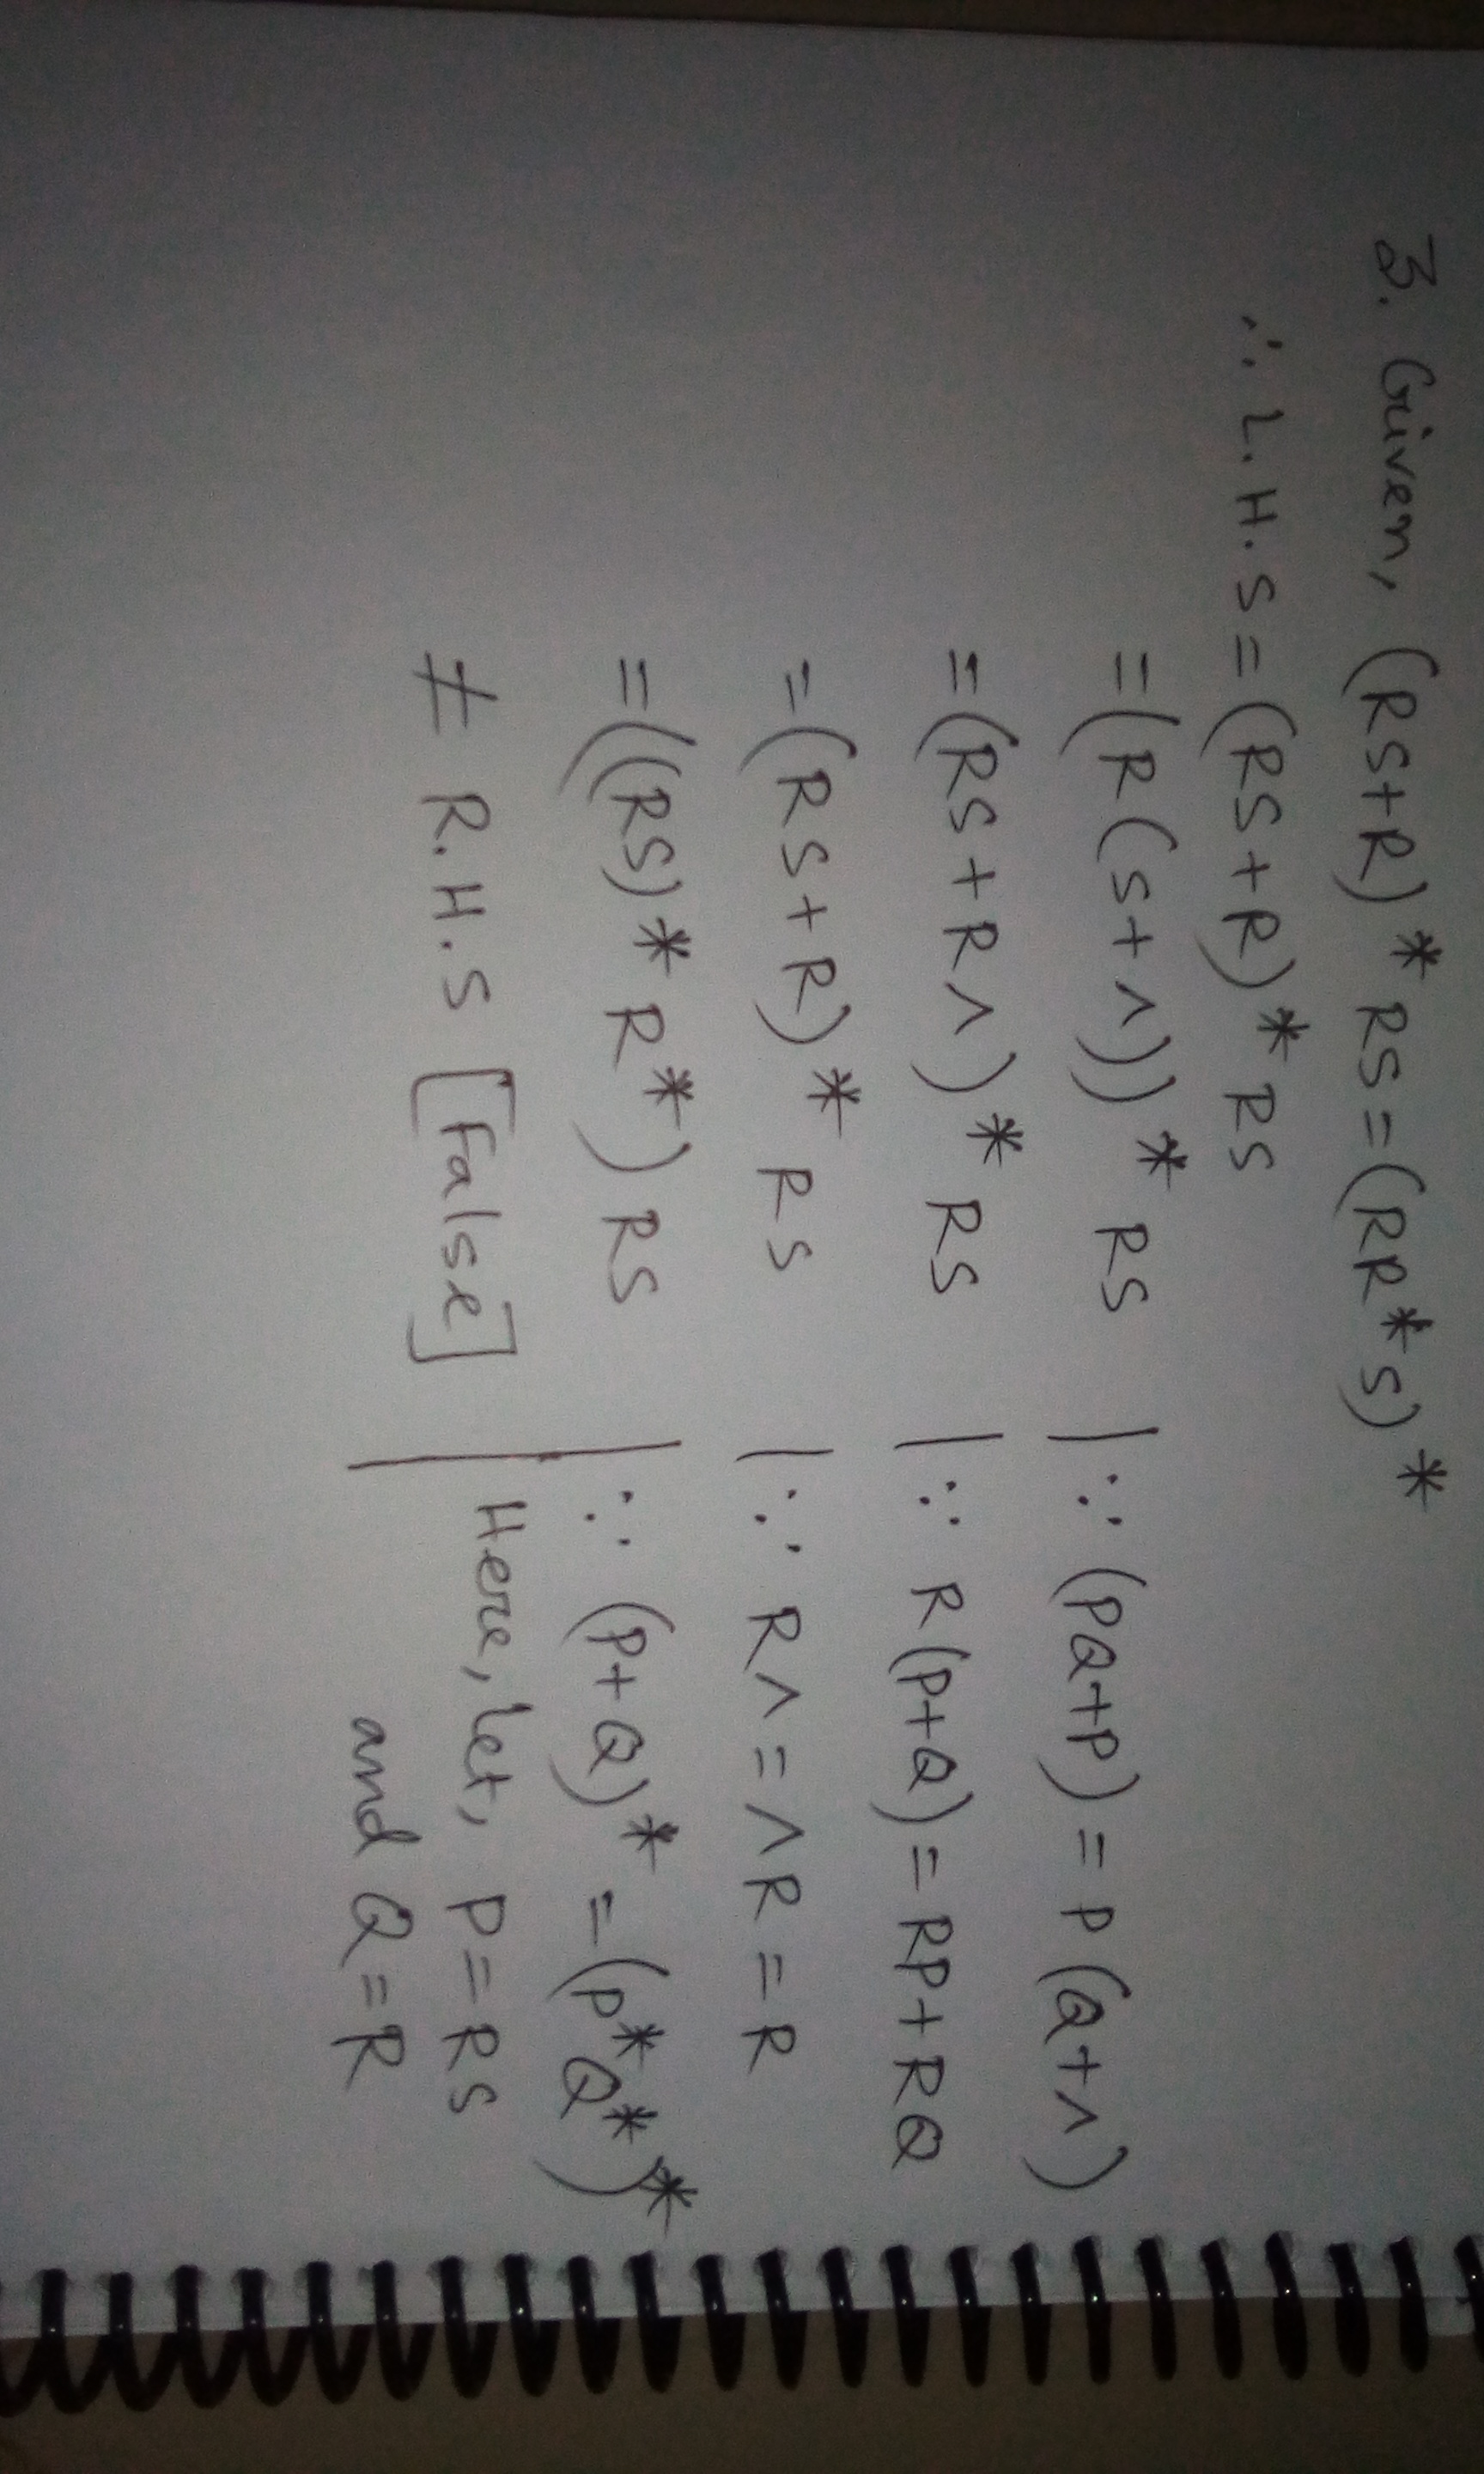 3. Given, (RS+R)* RS=(RR*S)*
∴ L.H.S=(RS+R)* RS
=(R(S+∧))* RS |∵ (PQ+P) = P(Q+∧)
=(RS+R∧)* RS |∵ R(P+Q)=RP+RQ
=(RS+R)* RS |∵ R∧=∧R=R
=((RS)* R*) RS |∵ (P+Q)* =(P*Q*)*
≠ R.H.S [False] Here, let, P=RS
and Q=R